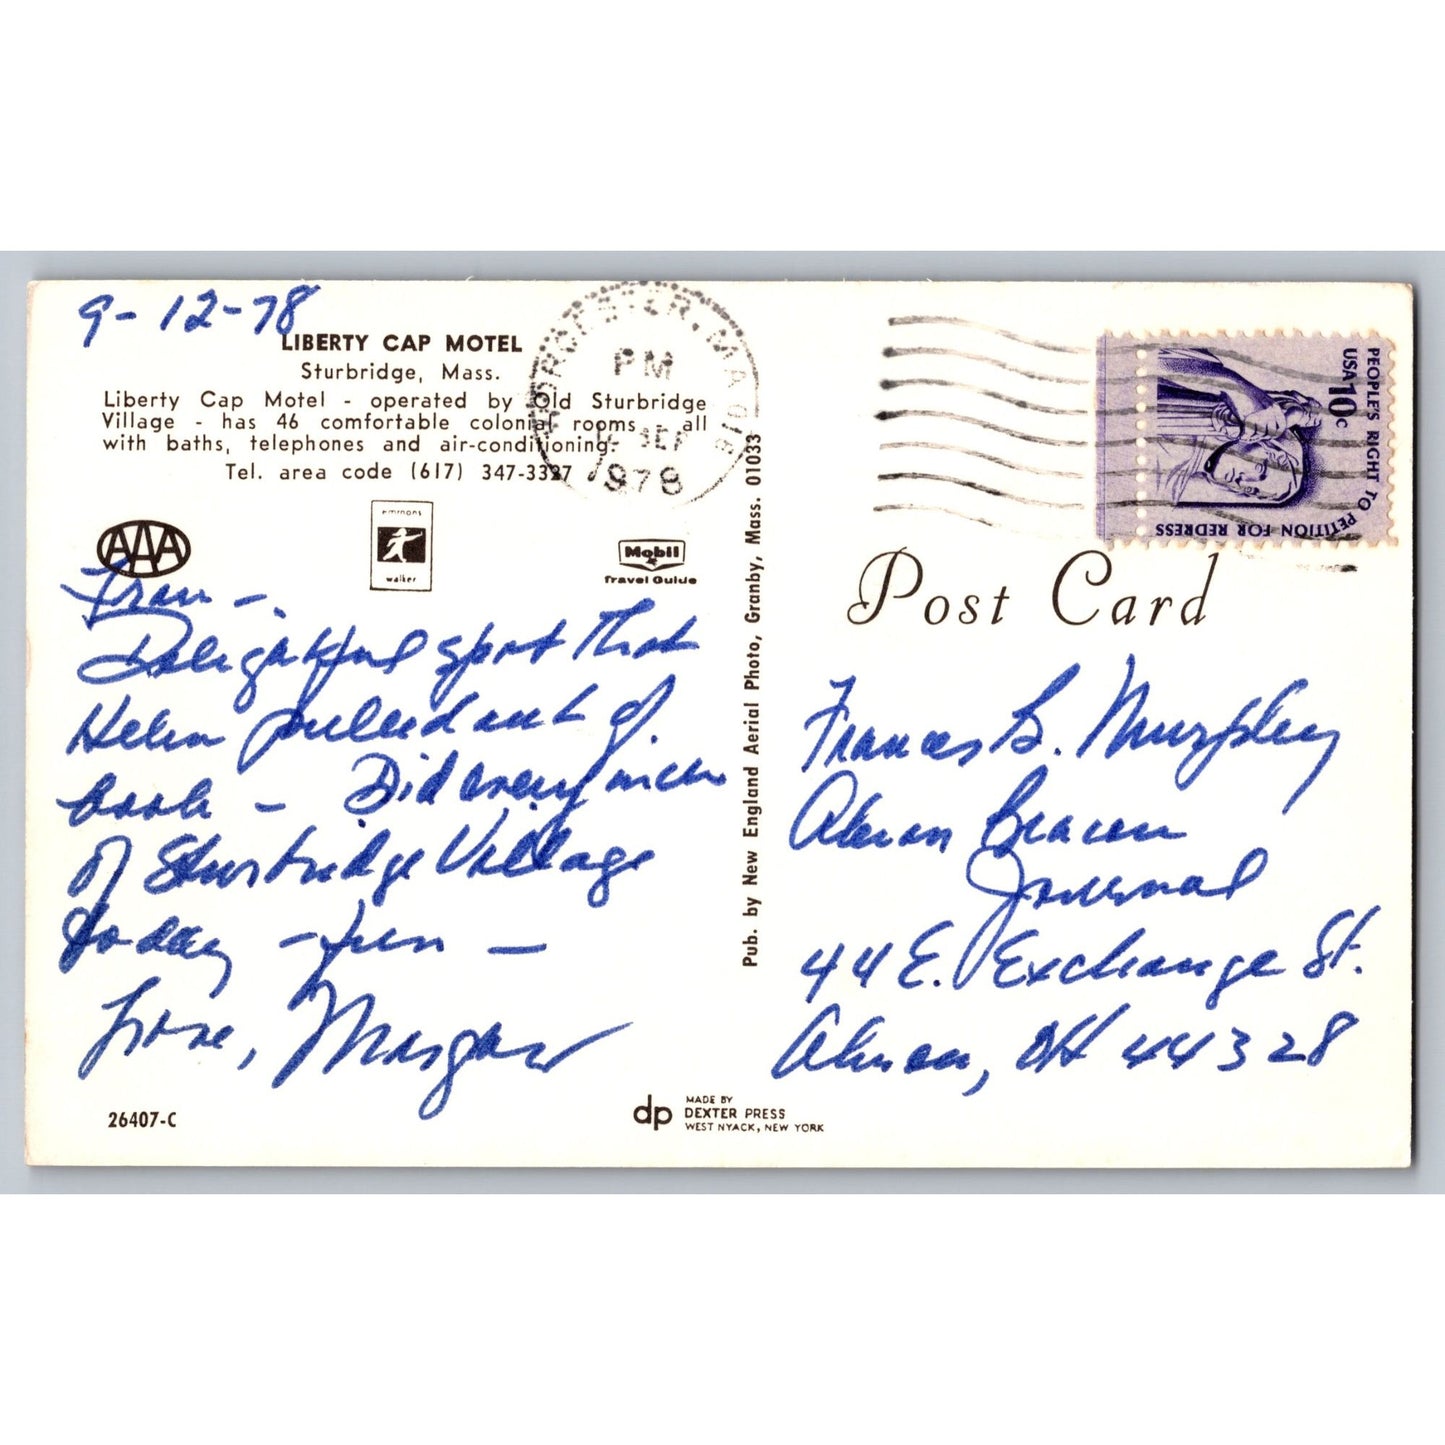 9-12-78
LIBERTY CAP MOTEL
Sturbridge, Mass.
Liberty Cap Motel - operated by Old Sturbridge
Village - has 46 comfortable colonial rooms - all
with baths, telephones and air-conditioning.
Tel. area code (617) 347-3327
AAA
emmons
walker
Mobil
Travel Guide
Fran -
Delightful spot that
Helen pulled out of
book - Did every inch
of Sturbridge Village
today - fun -
Love, Margaret
26407-C
dp
MADE BY
DEXTER PRESS
WEST NYACK, NEW YORK
Pub. by New England Aerial Photo, Granby, Mass. 01033
WORCESTER, MA 016
PM
SEP
1978
PEOPLE'S RIGHT TO PETITION FOR REDRESS
USA 10c
Post Card
Frances B. Murphey
Akron Beacon
Journal
44 E. Exchange St.
Akron, OH 44328